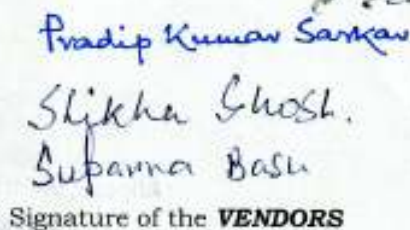 Pradip Kumar Sarkar
Shikha Ghosh.
Suparna Basu
Signature of the VENDORS